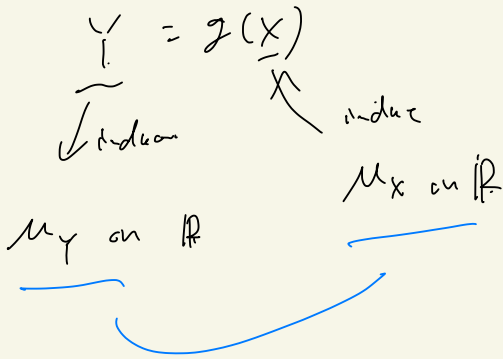 Y = g(X)
induce
induce
μ_X on ℝ
μ_Y on ℝ